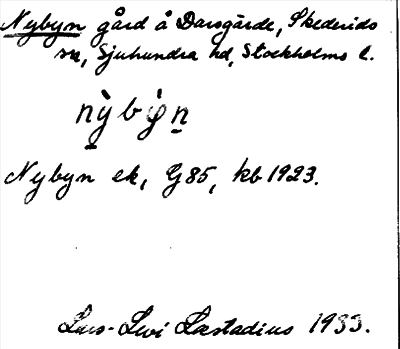 Nybyn gård å Darsgärde, Skederids
sn, Sjuhundra hd, Stockholms l.
nỳbẏn
Nybyn ek, G85, kb 1923.
Lars-Levi Læstadius 1933.